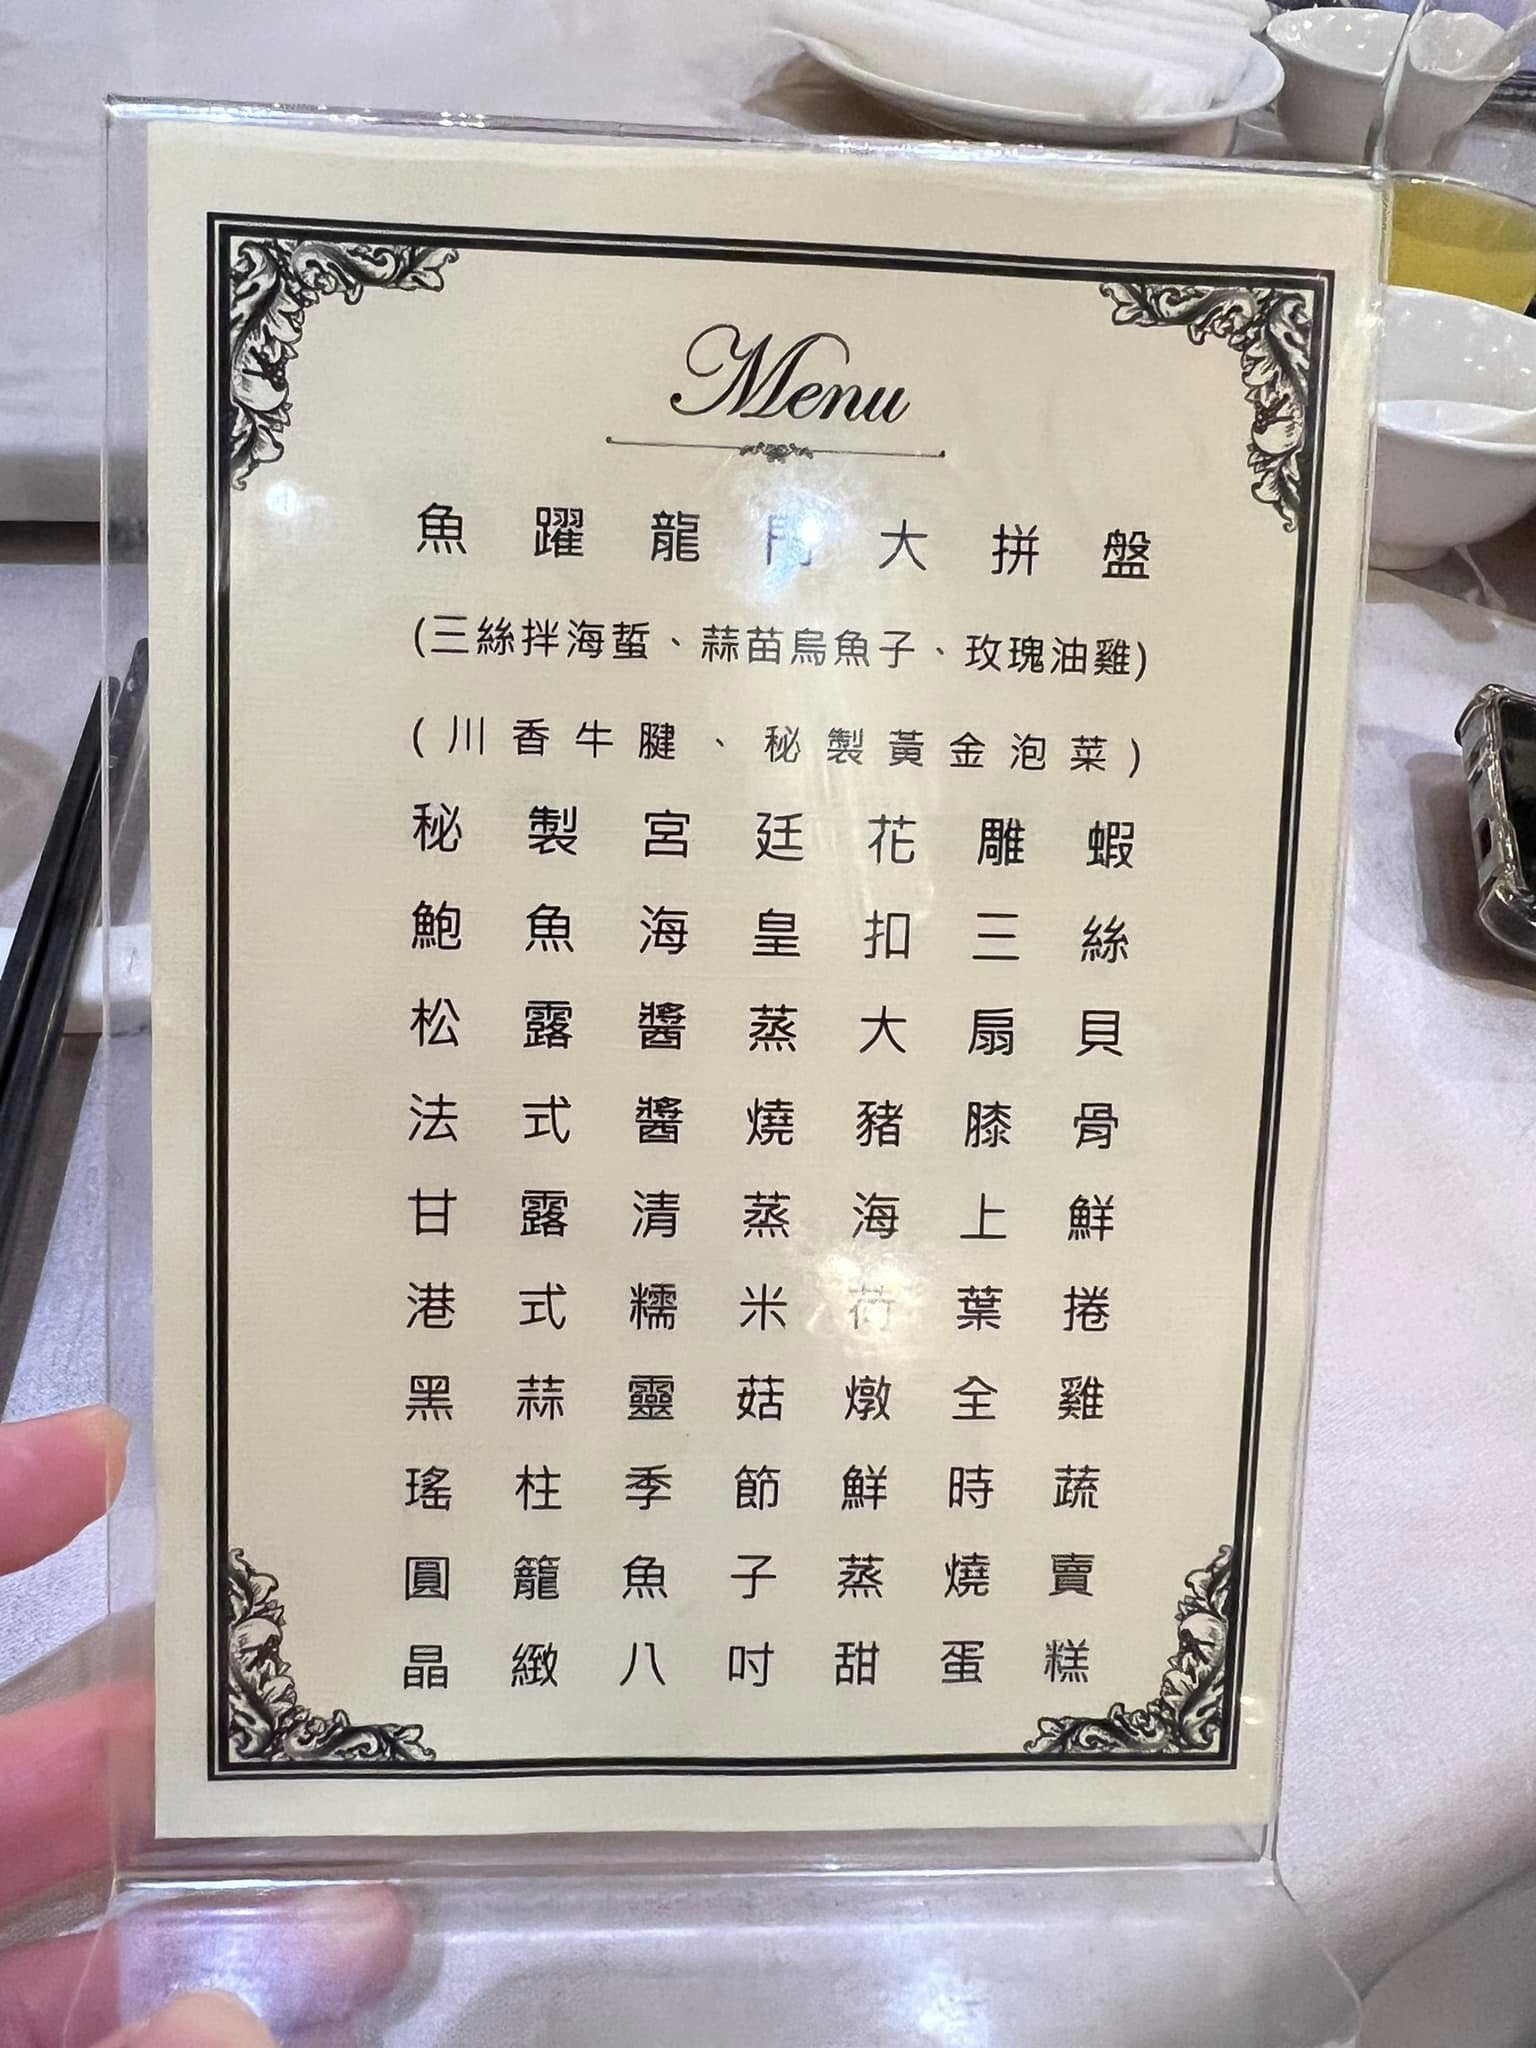 Menu
魚躍龍門大拼盤
(三絲拌海蜇、蒜苗烏魚子、玫瑰油雞)
(川香牛腱、秘製黃金泡菜)
秘製宮廷花雕蝦
鮑魚海皇扣三絲
松露醬蒸大扇貝
法式醬燒豬膝骨
甘露清蒸海上鮮
港式糯米荷葉捲
黑蒜靈菇燉全雞
瑤柱季節鮮時蔬
圓籠魚子蒸燒賣
晶緻八吋甜蛋糕